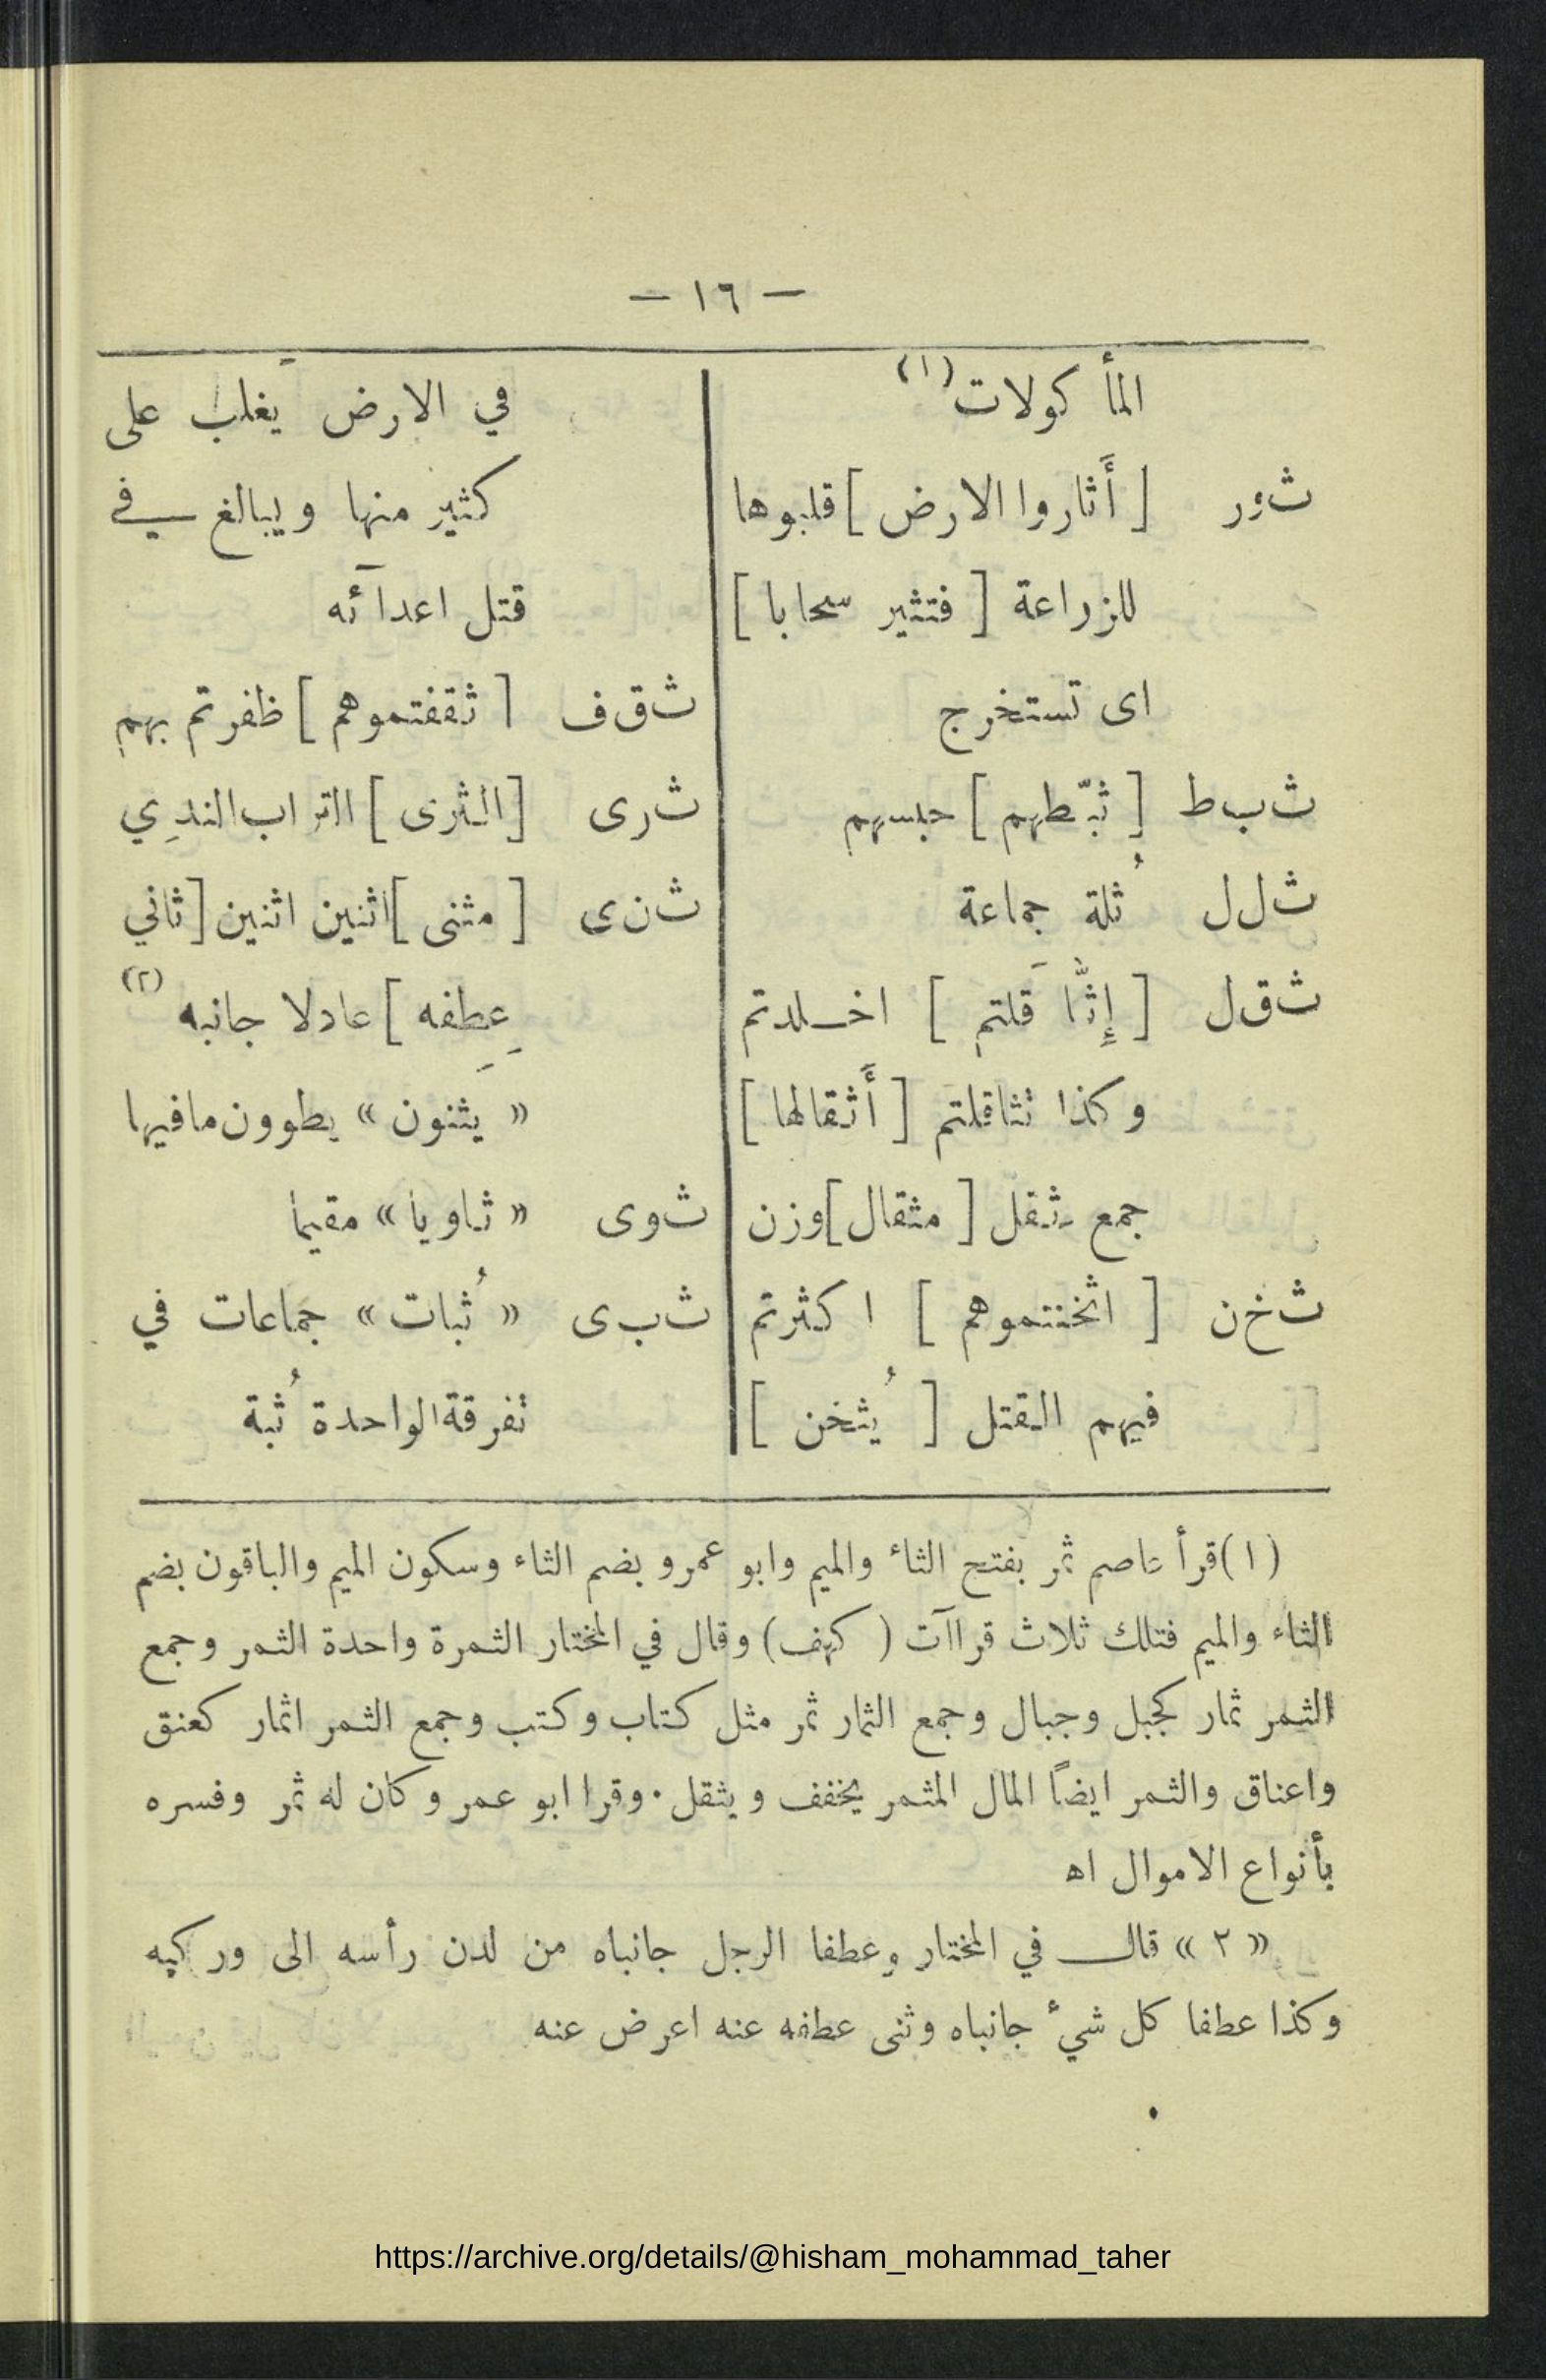 — ١٦ —
المأكولات (١)
ثور [ أَثاروا الارض ] قلبوها
للزراعة [ فتثير سحابا ]
اى تستخرج
ثبط [ ثبّطهم ] حبسهم
ثلل ثُلة جماعة
ثقل [ إِثَّاقَلتم ] اخلدتم
وكذا تثاقلتم [ أَثقالها ]
جمع ثِقل [ مثقال ] وزن
ثخن [ اثخنتموهم ] اكثرتم
فيهم القتل [ يُثخن ]
في الارض يَغلب على
كثير منها ويبالغ في
قتل اعدآئه
ثقف [ ثقفتموهم ] ظفرتم بهم
ثرى [ الثرى ] التراب الندِي
ثنى [ مثنى ] اثنين اثنين [ ثاني
عِطِفه ] عادلا جانبه (٢)
« يثنون » يطوون مافيها
ثوى « ثاويا » مقيما
ثبى « ثُبات » جماعات في
تفرقة الواحدة ثُبة
(١) قرأ عاصم ثمر بفتح الثاء والميم وابو عمرو بضم الثاء وسكون الميم والباقون بضم
الثاء والميم فتلك ثلاث قراآت ( كهف ) وقال في المختار الثمرة واحدة الثمر وجمع
الثمر ثمار كجبل وجبال وجمع الثمار ثمر مثل كتاب وكتب وجمع الثمر اثمار كعنق
واعناق والثمر ايضاً المال المثمر يخفف ويثقل . وقرا ابو عمر وكان له ثمر وفسره
بأنواع الاموال اه
« ٢ » قال في المختار وعطفا الرجل جانباه من لدن رأسه الى وركيه
وكذا عطفا كل شيء جانباه وثنى عطفه عنه اعرض عنه
https://archive.org/details/@hisham_mohammad_taher